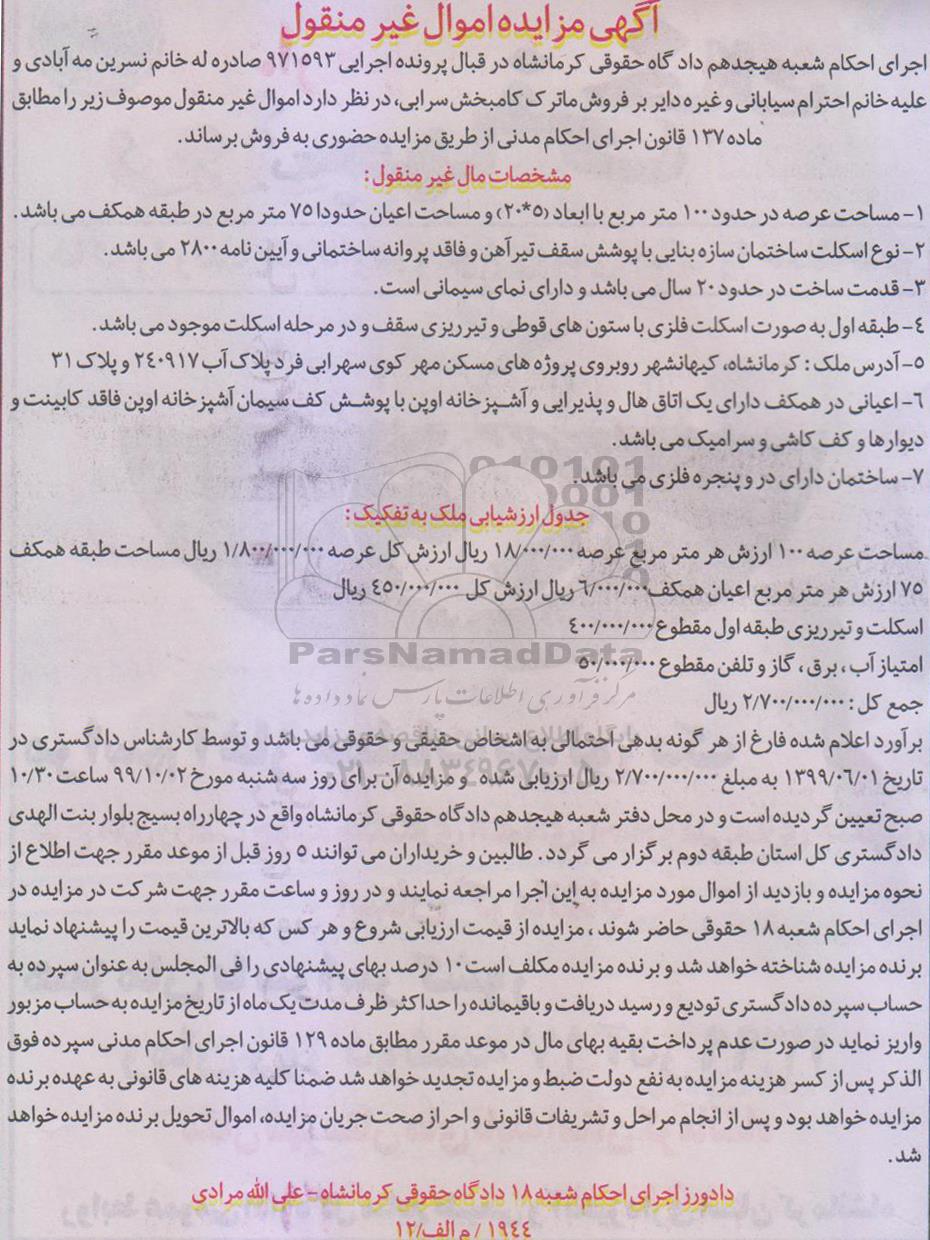 آگهی مزایده اموال غیر منقول
اجرای احکام شعبه هیجدهم دادگاه حقوقی کرمانشاه در قبال پرونده اجرایی ۹۷۱۵۹۳ صادره له خانم نسرین مه آبادی و
علیه خانم احترام سیابانی و غیره دایر بر فروش ماترک کامبخش سرابی، در نظر دارد اموال غیر منقول موصوف زیر را مطابق
ماده ۱۳۷ قانون اجرای احکام مدنی از طریق مزایده حضوری به فروش برساند.
مشخصات مال غیر منقول:
۱- مساحت عرصه در حدود ۱۰۰ متر مربع با ابعاد (۵*۲۰) و مساحت اعیان حدودا ۷۵ متر مربع در طبقه همکف می باشد.
۲- نوع اسکلت ساختمان سازه بنایی با پوشش سقف تیرآهن و فاقد پروانه ساختمانی و آیین نامه ۲۸۰۰ می باشد.
۳- قدمت ساخت در حدود ۲۰ سال می باشد و دارای نمای سیمانی است.
۴- طبقه اول به صورت اسکلت فلزی با ستون های قوطی و تیرریزی سقف و در مرحله اسکلت موجود می باشد.
۵- آدرس ملک: کرمانشاه، کیهانشهر روبروی پروژه های مسکن مهر کوی سهرابی فرد پلاک آب ۲۴۰۹۱۷ و پلاک ۳۱
۶- اعیانی در همکف دارای یک اتاق هال و پذیرایی و آشپزخانه اوپن با پوشش کف سیمان آشپزخانه اوپن فاقد کابینت و
دیوارها و کف کاشی و سرامیک می باشد.
۷- ساختمان دارای در و پنجره فلزی می باشد.
جدول ارزشیابی ملک به تفکیک:
مساحت عرصه ۱۰۰ ارزش هر متر مربع عرصه ۱۸/۰۰۰/۰۰۰ ریال ارزش کل عرصه ۱/۸۰۰/۰۰۰/۰۰۰ ریال مساحت طبقه همکف
۷۵ ارزش هر متر مربع اعیان همکف ۶/۰۰۰/۰۰۰ ریال ارزش کل ۴۵۰/۰۰۰/۰۰۰ ریال
اسکلت و تیرریزی طبقه اول مقطوع ۴۰۰/۰۰۰/۰۰۰
امتیاز آب، برق، گاز و تلفن مقطوع ۵۰/۰۰۰/۰۰۰
ParsNamadData
مرکز فرآوری اطلاعات پارس نماد داده ها
جمع کل: ۲/۷۰۰/۰۰۰/۰۰۰ ریال
برآورد اعلام شده فارغ از هر گونه بدهی احتمالی به اشخاص حقیقی و حقوقی می باشد و توسط کارشناس دادگستری در
تاریخ ۱۳۹۹/۰۶/۰۱ به مبلغ ۲/۷۰۰/۰۰۰/۰۰۰ ریال ارزیابی شده و مزایده آن برای روز سه شنبه مورخ ۹۹/۱۰/۰۲ ساعت ۱۰/۳۰
صبح تعیین گردیده است و در محل دفتر شعبه هیجدهم دادگاه حقوقی کرمانشاه واقع در چهارراه بسیج بلوار بنت الهدی
دادگستری کل استان طبقه دوم برگزار می گردد. طالبین و خریداران می توانند ۵ روز قبل از موعد مقرر جهت اطلاع از
نحوه مزایده و بازدید از اموال مورد مزایده به این اجرا مراجعه نمایند و در روز و ساعت مقرر جهت شرکت در مزایده در
اجرای احکام شعبه ۱۸ حقوقی حاضر شوند، مزایده از قیمت ارزیابی شروع و هر کس که بالاترین قیمت را پیشنهاد نماید
برنده مزایده شناخته خواهد شد و برنده مزایده مکلف است ۱۰ درصد بهای پیشنهادی را فی المجلس به عنوان سپرده به
حساب سپرده دادگستری تودیع و رسید دریافت و باقیمانده را حداکثر ظرف مدت یک ماه از تاریخ مزایده به حساب مزبور
واریز نماید در صورت عدم پرداخت بقیه بهای مال در موعد مقرر مطابق ماده ۱۲۹ قانون اجرای احکام مدنی سپرده فوق
الذکر پس از کسر هزینه مزایده به نفع دولت ضبط و مزایده تجدید خواهد شد ضمنا کلیه هزینه های قانونی به عهده برنده
مزایده خواهد بود و پس از انجام مراحل و تشریفات قانونی و احراز صحت جریان مزایده، اموال تحویل برنده مزایده خواهد
شد.
دادورز اجرای احکام شعبه ۱۸ دادگاه حقوقی کرمانشاه - علی الله مرادی
۱۹۴۴ / م الف/۱۲